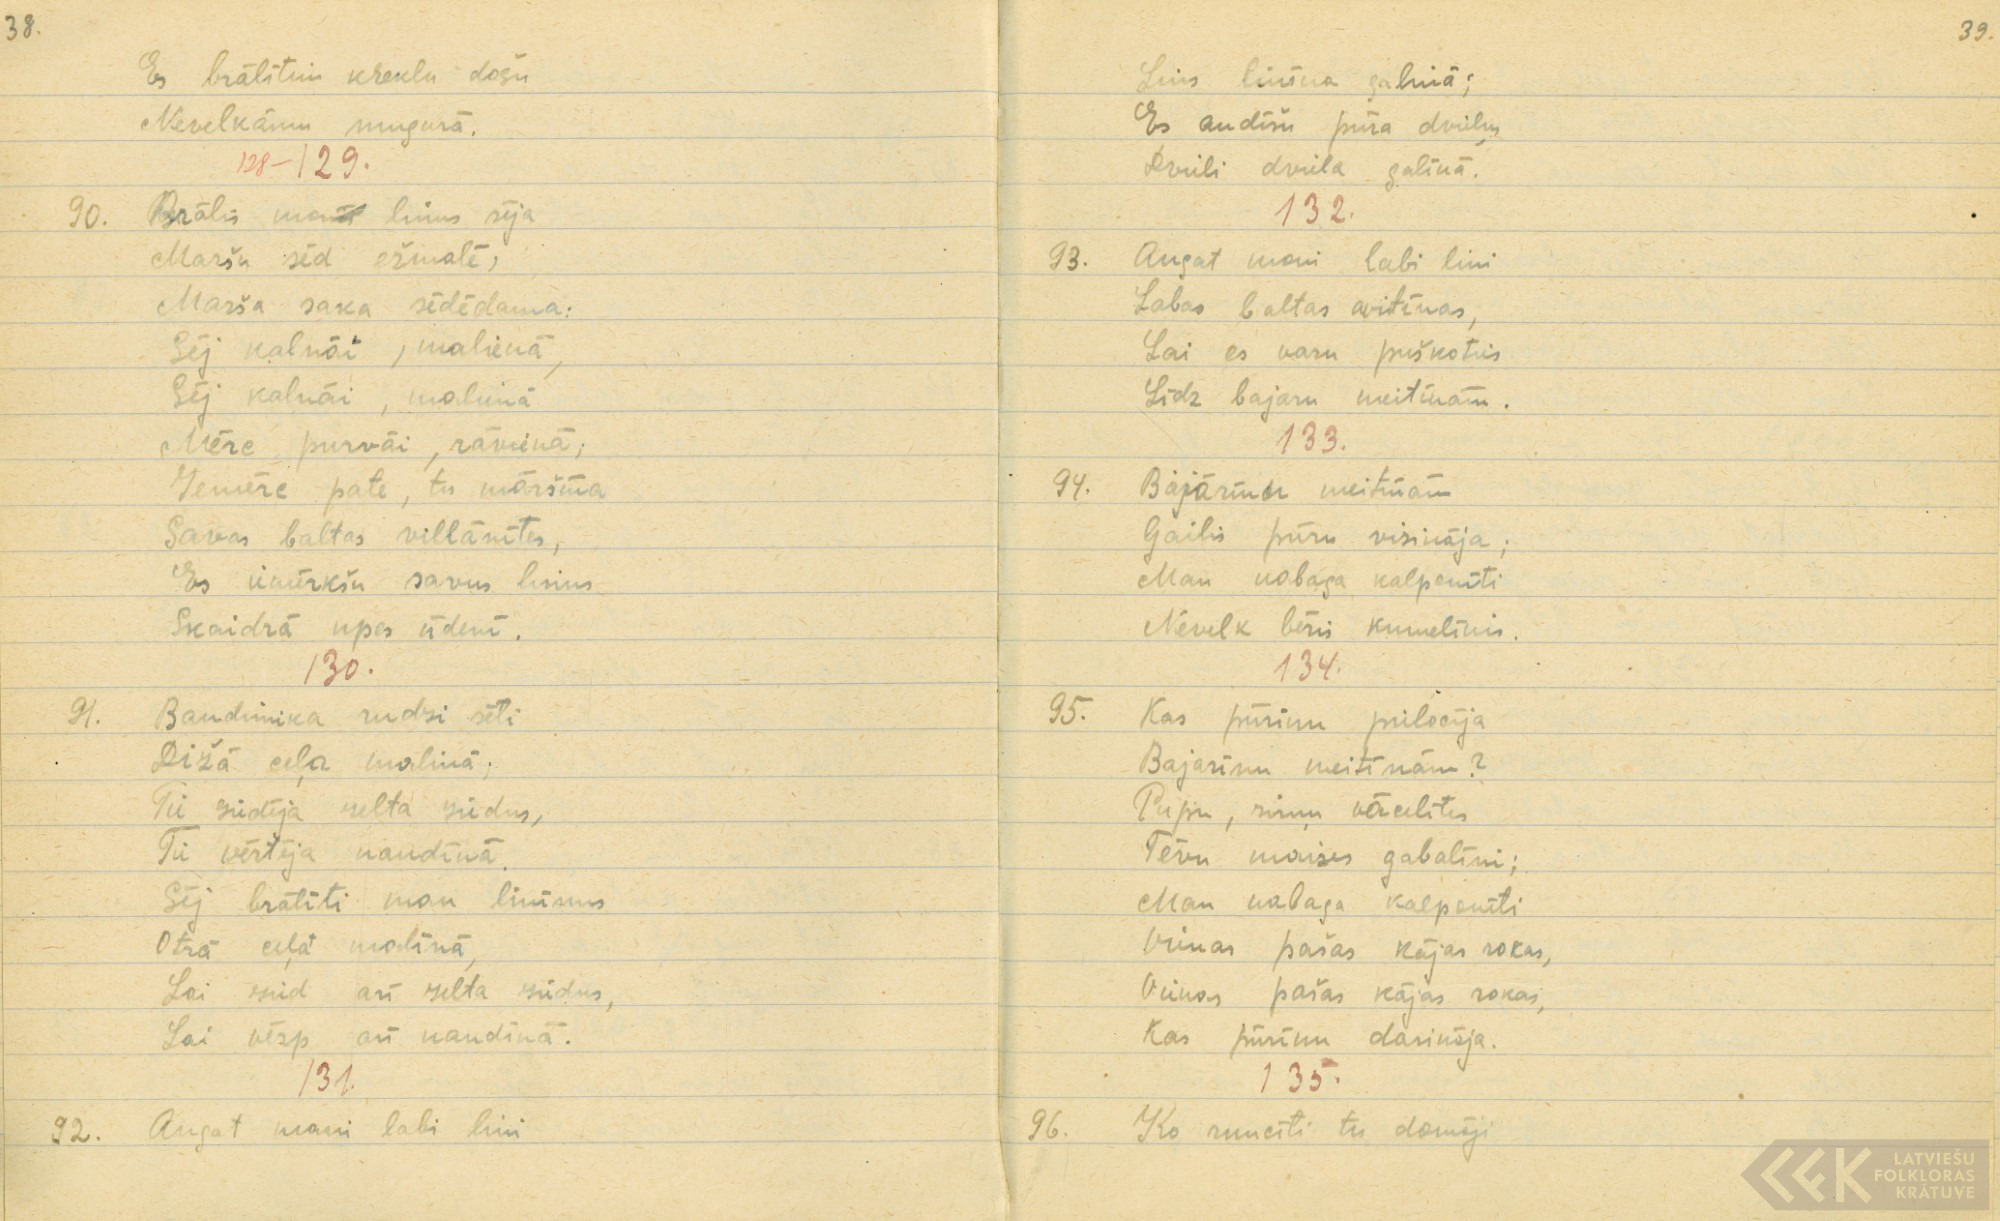 38.
Es brālītim kreklu došu
Nevelkāmu mugurā.
128-129.
90. Brālis linus sēja
Marša sēd ežmalē,
Marša saka sēdēdama:
Sēj kalnāi, malienā,
Sēj kalnāi, malienā
Mērc purvāi, rāvienā;
Iemērc pate, tu māršiņa
Savas baltas villānītes,
Es iemērkšu savus linus
Skaidrā upes ūdenī.
130.
91. Baudinika rudzi sēti
Dižā ceļa maliņā;
Tie ziedēja zelta ziedus,
Tie vērtēja naudīnā.
Sēj brālīti man linīnus
Otrā ceļa malīnā,
Lai zied arī zelta ziedus,
Lai vērp arī naudīnā.
131.
92. Augat mani labi lini
39.
Lins linīna galinā;
Es audīšu pūra dvieļus
Dvieli dvieļa galīnā.
132.
93. Augat mani labi lini
Labas baltas avitīnas,
Lai es varu puškoties
Līdz bajaru meitīnām.
133.
94. Bajārīnu meitīnām
Gailis pūru vizināja;
Man nabaga kalponīti
Nevelk bēris kumelīnis.
134.
95. Kas pūrīnu pielocīja
Bajarīnu meitīnām?
Pupu, zirņu vācelītes
Tēvu maizes gabalīni;
Man nabaga kalponīti
Vienas pašas kājas rokas,
Vienas pašas kājas rokas,
Kas pūrīnu darināja.
135.
96. Ko runcīti tu domāji
LATVIEŠU
FOLKLORAS
KRĀTUVE